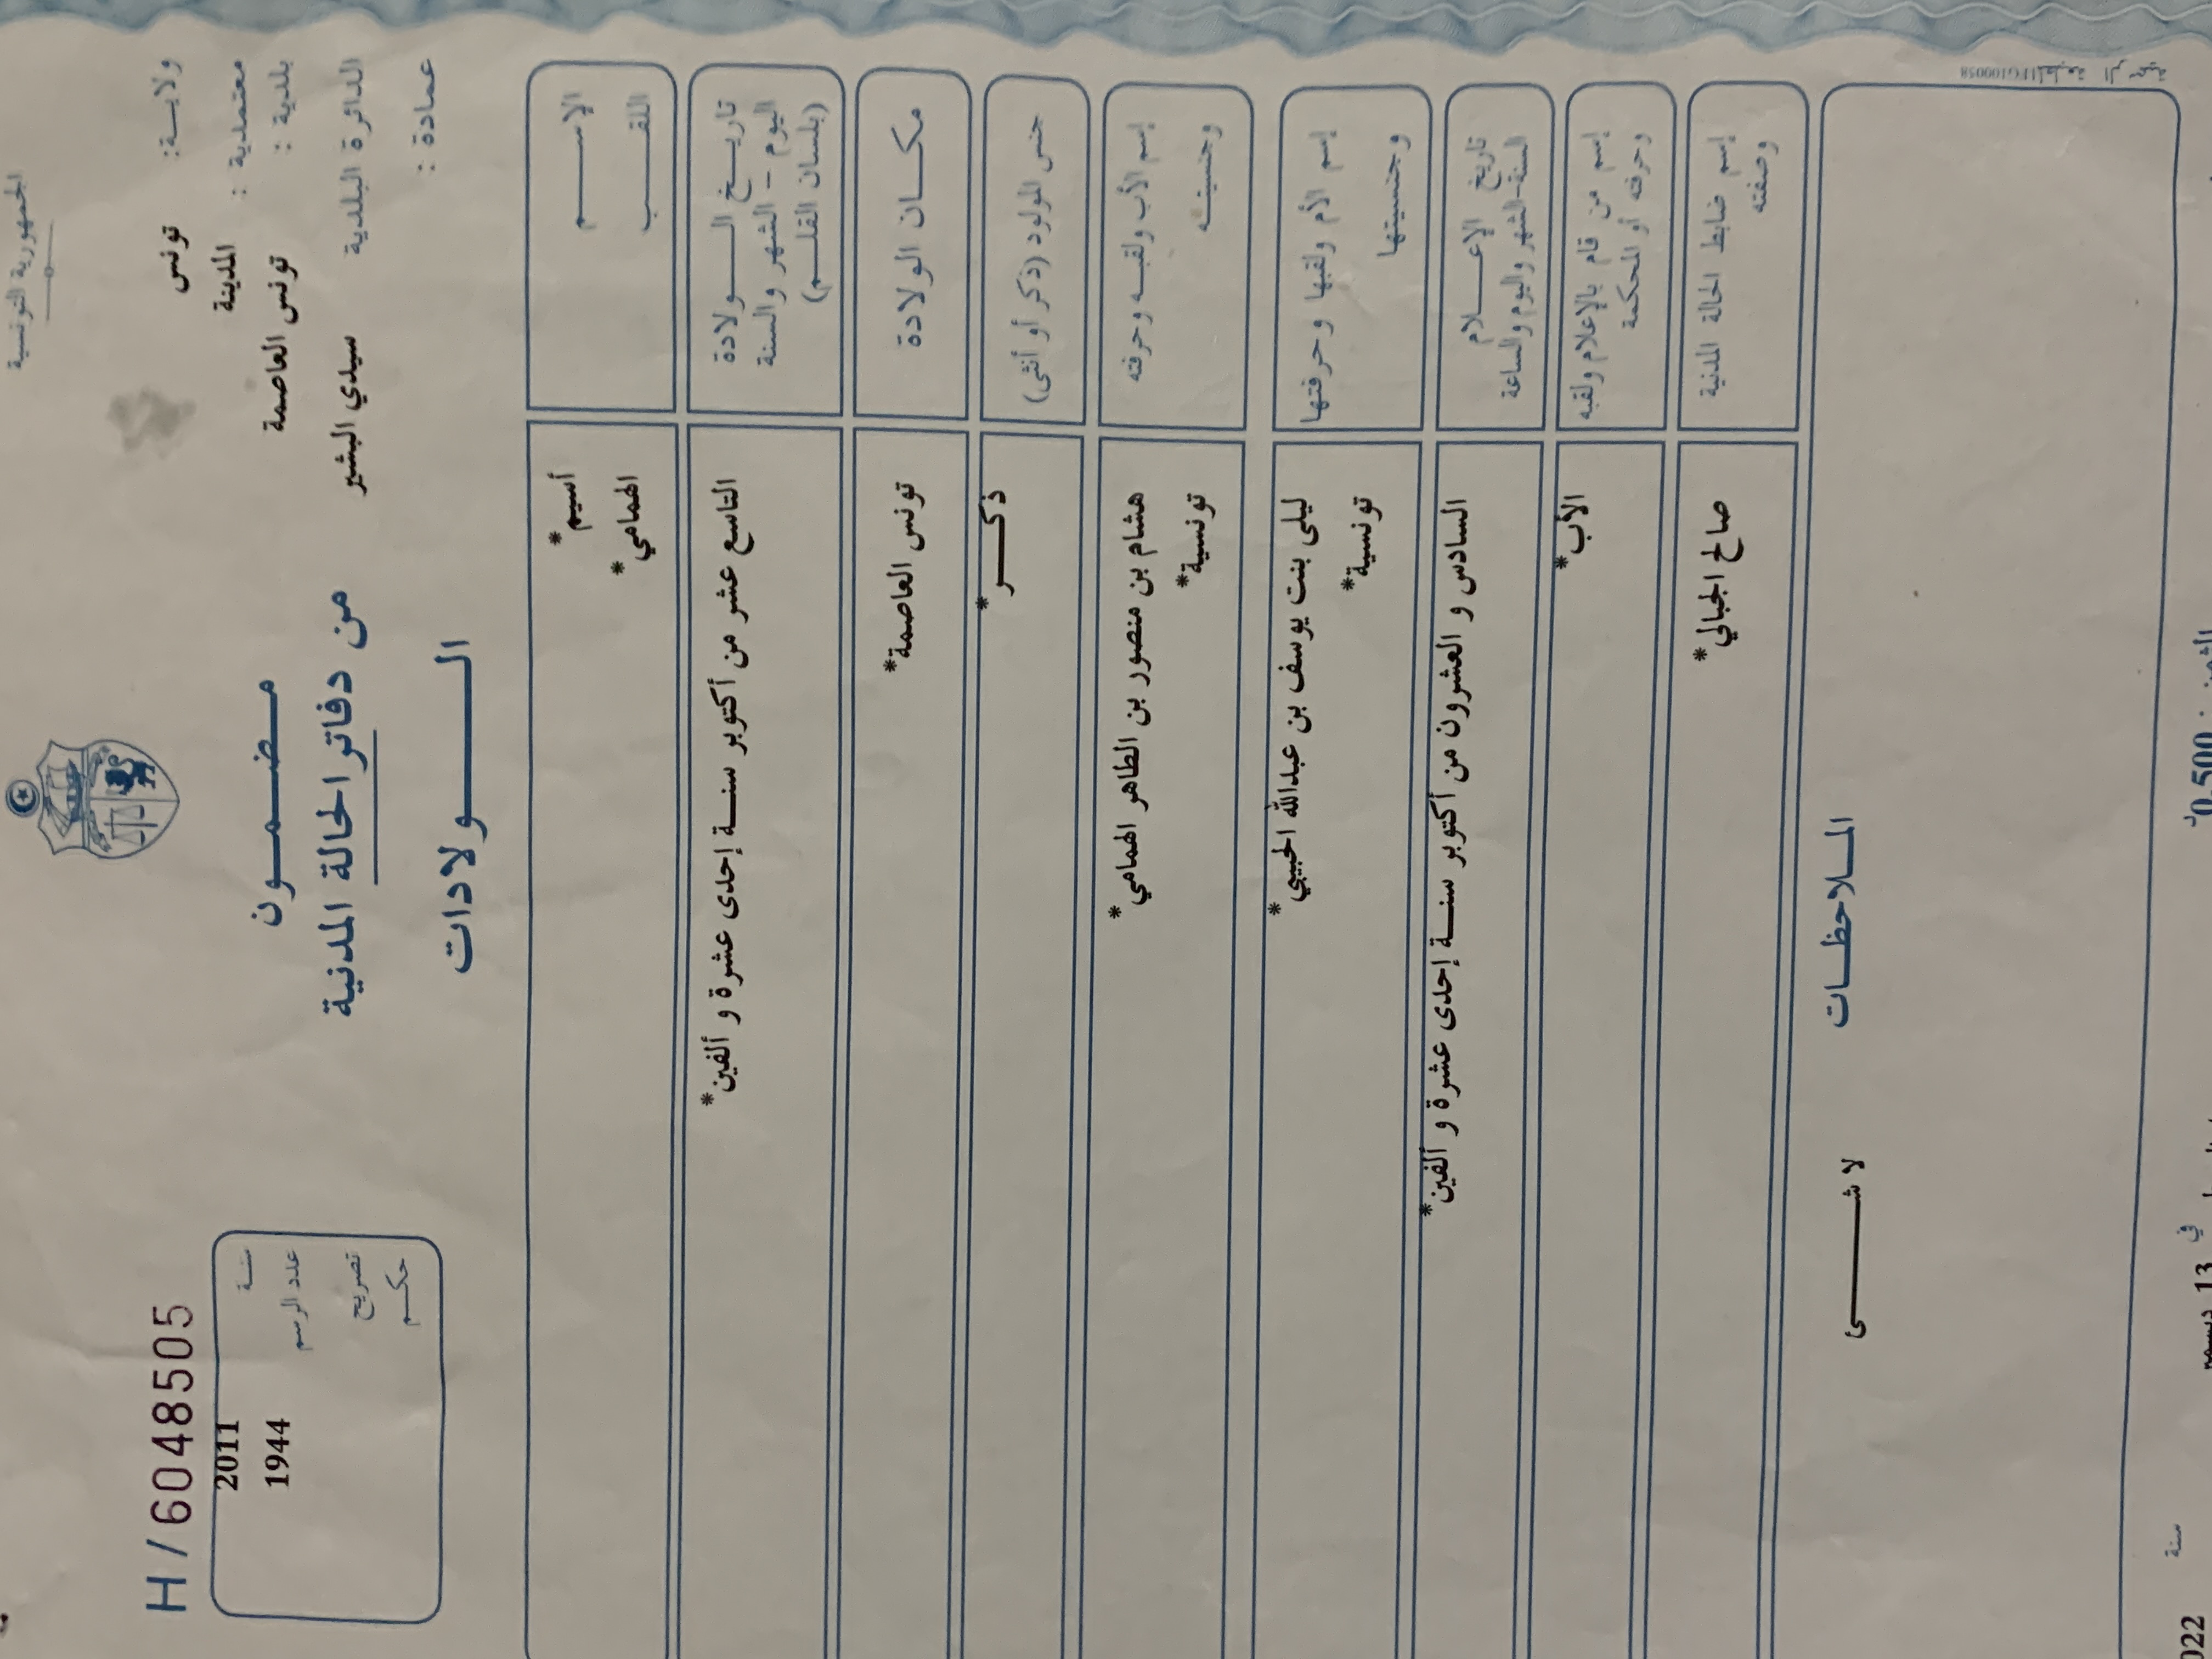 الجمهورية التونسية
ولايـــة: تونس
معتمدية : المدينة
بلدية : تونس العاصمة
الدائرة البلدية سيدي البشير
عمادة :
مـضـمـون
من دفاتر الحالة المدنية
الـــولادات
H/6048505
سنـــة 2011
عدد الرسم 1944
تصريح
حكـــم
الإســـــم أسيم*
اللقـــــب الهمامي*
تاريـــخ الـــــولادة
اليوم - الشهر والسنة
(بلسان القلـــم)
التاسع عشر من أكتوبر سنـــة إحدى عشرة و ألفين*
مكـــان الولادة تونس العاصمة*
جنس المولود (ذكر أو أنثى) ذكـــر*
إسم الأب ولقبـــه وحرفته هشام بن منصور بن الطاهر الهمامي*
وجنسيتـــه تونسية*
إسم الأم ولقبها وحرفتها ليلى بنت يوسف بن عبدالله الحبيبي*
وجنسيتها تونسية*
تاريخ الإعـــلام
السنة-الشهر واليوم والساعة
السادس و العشرون من أكتوبر سنـــة إحدى عشرة و ألفين*
إسم من قام بالإعلام ولقبه الأب*
وحرفته أو المحكمة
إسم ضابط الحالة المدنية صالح الجبالي*
وصفته
المـــلاحظـــات
لا شـــــئ
G100058
0,500
في 13
سنة